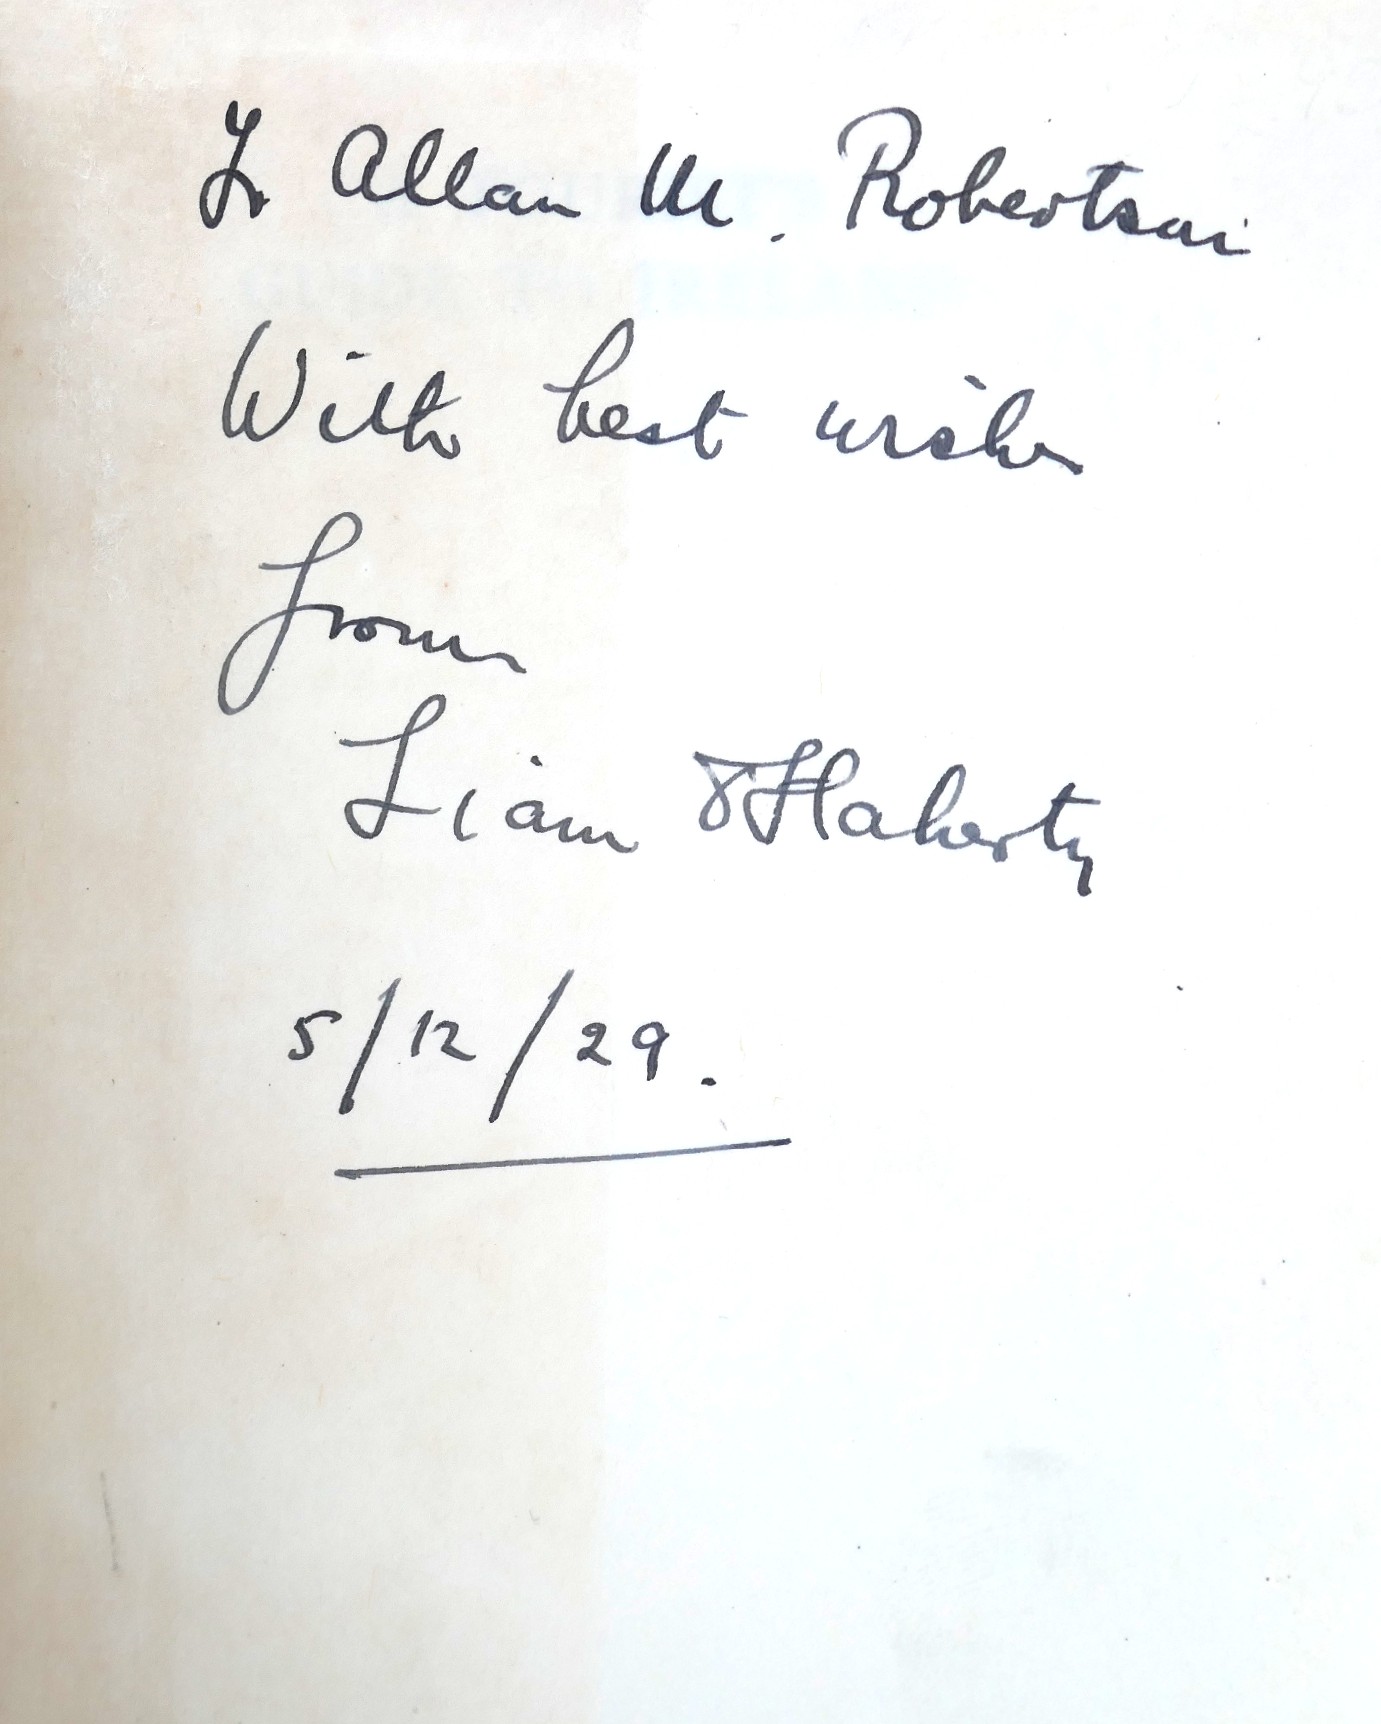 To Allan M. Robertson
With best wishes
from
Liam O'Flaherty
5/12/29.